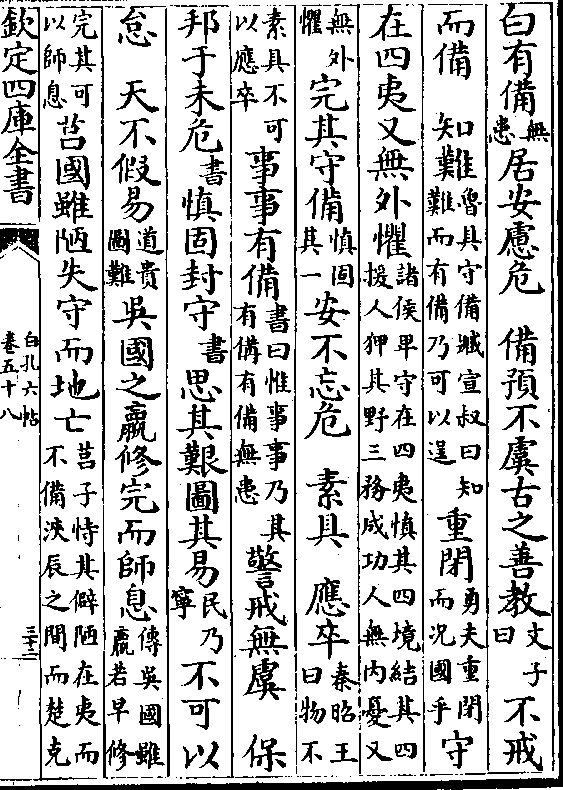 白有備無患居安慮危　備預不虞古之善教文子曰不戒
而備　知難魯具守備臧宣叔曰知難而有備乃可以逞重閉勇夫重閉而況國乎守
在四夷又無外懼諸侯卑守在四夷慎其四境結其四援人狎其野三務成功人無内憂又
無外懼完其守備慎固其一安不忘危　素具　應卒秦昭王曰物不
素具不可以應卒事事有備書曰惟事事乃其有備有備無患警戒無虞　保
邦于未危書慎固封守書思其艱圖其易民乃寧不可以
怠　天不假易道貴圖難吳國之羸修完而師息傳吳國雖羸若早修
完其可以師息莒國雖陋失守而地亡莒子恃其僻陋在夷而不備浹辰之間而楚克
欽定四庫全書
白孔六帖
卷五十八